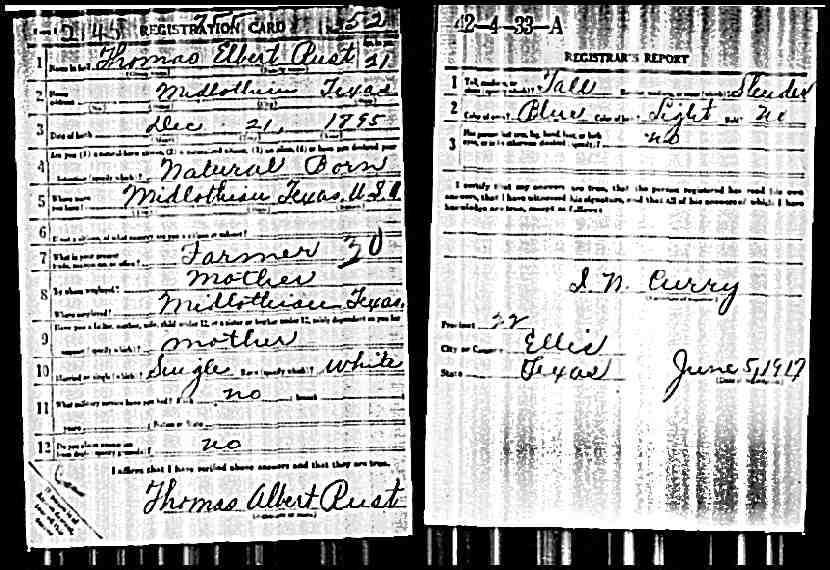 245 REGISTRATION CARD 252
1 Name in full Thomas Elbert Rust 21
2 Home address Midlothian Texas
3 Date of birth Dec 21, 1895
Are you (1) a natural born, (2) a naturalized citizen, (3) an alien, (4) or have you declared your
4 intention (specify which)? Natural Born
5 Where were you born? Midlothian Texas, U.S.A
6 If not a citizen, of what country are you a citizen or subject?
7 What is your present trade, occupation, or office? Farmer 30
8 By whom employed? Mother
Where employed? Midlothian Texas.
Have you a father, mother, wife, child under 12, or a sister or brother under 12, solely dependent on you for
9 support (specify which)? mother
10 Married or single (which)? Single Race (specify which)? White
11 What military service have you had? Rank no branch
years Nation or State
12 Do you claim exemption from draft (specify grounds)? no
I affirm that I have verified above answers and that they are true.
Thomas Albert Rust
42-4-33-A
REGISTRAR'S REPORT
1 Tall, medium, or short (specify which)? Tall Slender, medium, or stout (which)? Slender
2 Color of eyes? Blue Color of hair? Light Bald? no
3 Has person lost arm, leg, hand, foot, or both eyes, or is he otherwise disabled (specify)? no
I certify that my answers are true, that the person registered has read his own
answers, that I have witnessed his signature, and that all of his answers of which I have
knowledge are true, except as follows:
I. N. Curry
Precinct 22
City or County Ellis
State Texas June 5, 1917